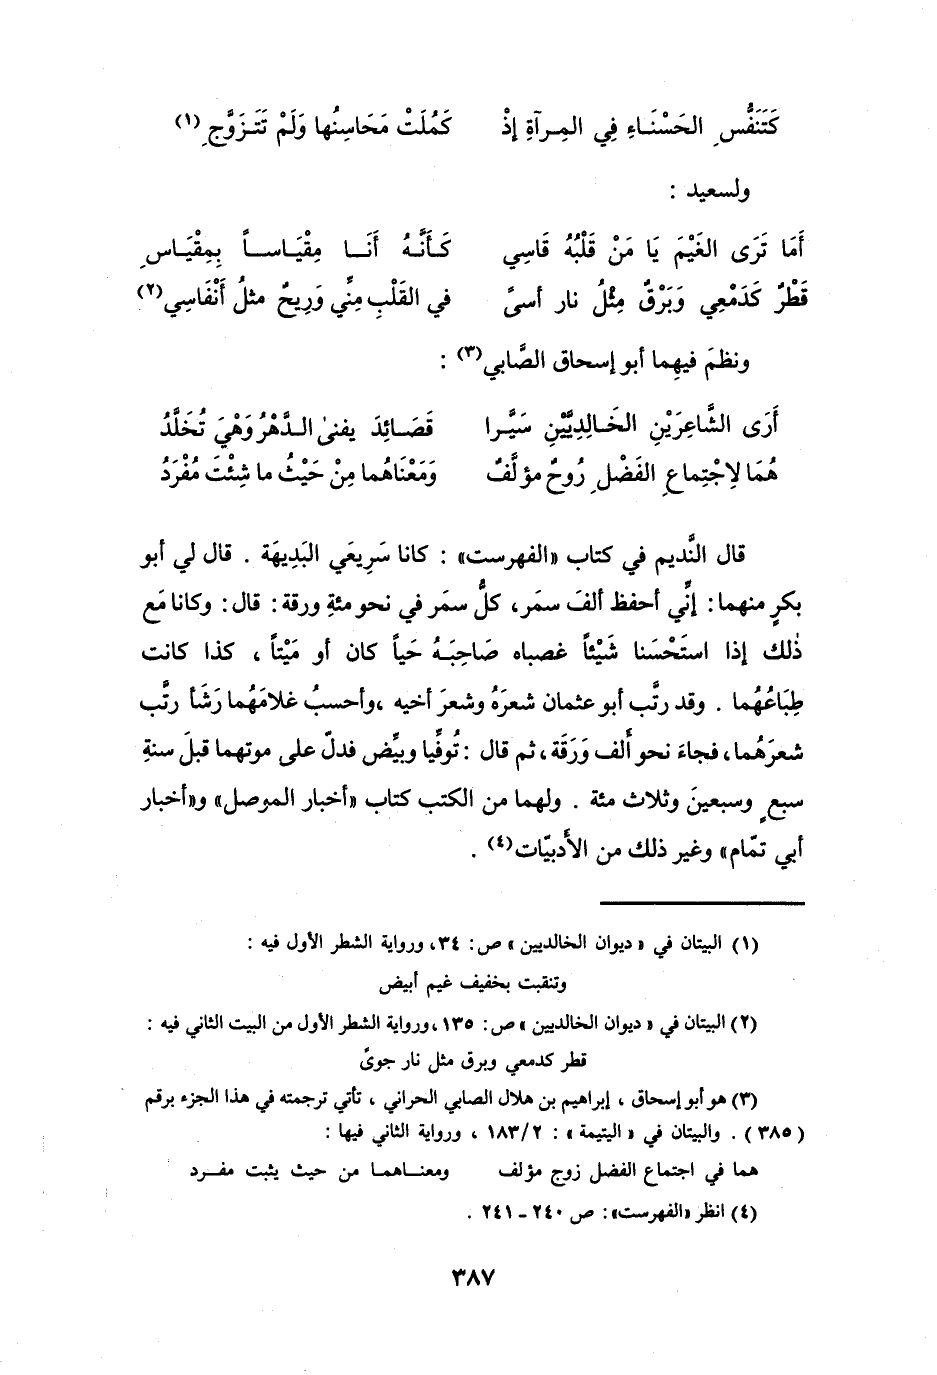 كَتَنَفُّسِ الحَسْنَاءِ فِي المِرآةِ إذْ كَمُلَتْ مَحَاسِنُها وَلَمْ تَتَزَوَّجِ (١)
ولسعيد :
أَمَا تَرَى الغَيْمَ يَا مَنْ قَلْبُهُ قَاسِي كَأَنَّهُ أَنَا مِقْيَاساً بِمِقْيَاسِ
قَطْرٌ كَدَمْعِي وَبَرْقٌ مِثْلُ نار أسىً في القَلْبِ مِنِّي وَرِيحٌ مثلُ أَنْفَاسِي(٢)
ونظمَ فيهِما أبو إسحاق الصَّابي(٣) :
أَرَى الشَّاعِرَيْنِ الخَالِدِيَّيْنِ سَيَّرا قَصَائِدَ يفنىٰ الدَّهْرُ وَهْيَ تُخَلَّدُ
هُمَا لاِجْتِماعِ الفَضْلِ رُوحٌ مؤلَّفٌ وَمَعْنَاهُما مِنْ حَيْثُ ما شِئْتَ مُفْرَدُ
قال النَّديم في كتاب «الفهرست» : كانا سَرِيعَي البَدِيهَة . قال لي أبو
بكرٍ منهما: إنِّي أحفظ ألفَ سمَر، كلُّ سمَر في نحو مئةِ ورقة: قال: وكانا مَع
ذٰلك إذا استَحْسَنا شَيْئاً غصباه صَاحِبَهُ حَياً كان أو مَيْتاً ، كذا كانت
طِبَاعُهُما . وقد رتَّب أبو عثمان شعرَهُ وشعرَ أخيه ،وأحسبُ غلامَهُما رَشَأ رتَّب
شعرَهُما، فجاءَ نحو أَلف وَرَقَة، ثم قال :تُوفِّيا وبيِّض فدلّ على موتهما قبلَ سنةِ
سبعٍ وسبعينَ وثلاث مئة . ولهما من الكتب كتاب «أخبار الموصل» و«أخبار
أبي تمّام» وغير ذلك من الأَدبيّات(٤) .
(١) البيتان في «ديوان الخالديين» ص: ٣٤، ورواية الشطر الأول فيه :
وتنقبت بخفيف غيم أبيض
(٢) البيتان في «ديوان الخالديين» ص: ١٣٥، ورواية الشطر الأول من البيت الثاني فيه :
قطر كدمعي وبرق مثل نار جوىً
(٣) هو أبو إسحاق ، إبراهيم بن هلال الصابي الحراني ، تأتي ترجمته في هذا الجزء برقم
(٣٨٥) . والبيتان في «اليتيمة» : ١٨٣/٢ ، ورواية الثاني فيها :
هما في اجتماع الفضل زوج مؤلف ومعناهما من حيث يثبت مفرد
(٤) انظر «الفهرست»: ص ٢٤٠ - ٢٤١ .
٣٨٧